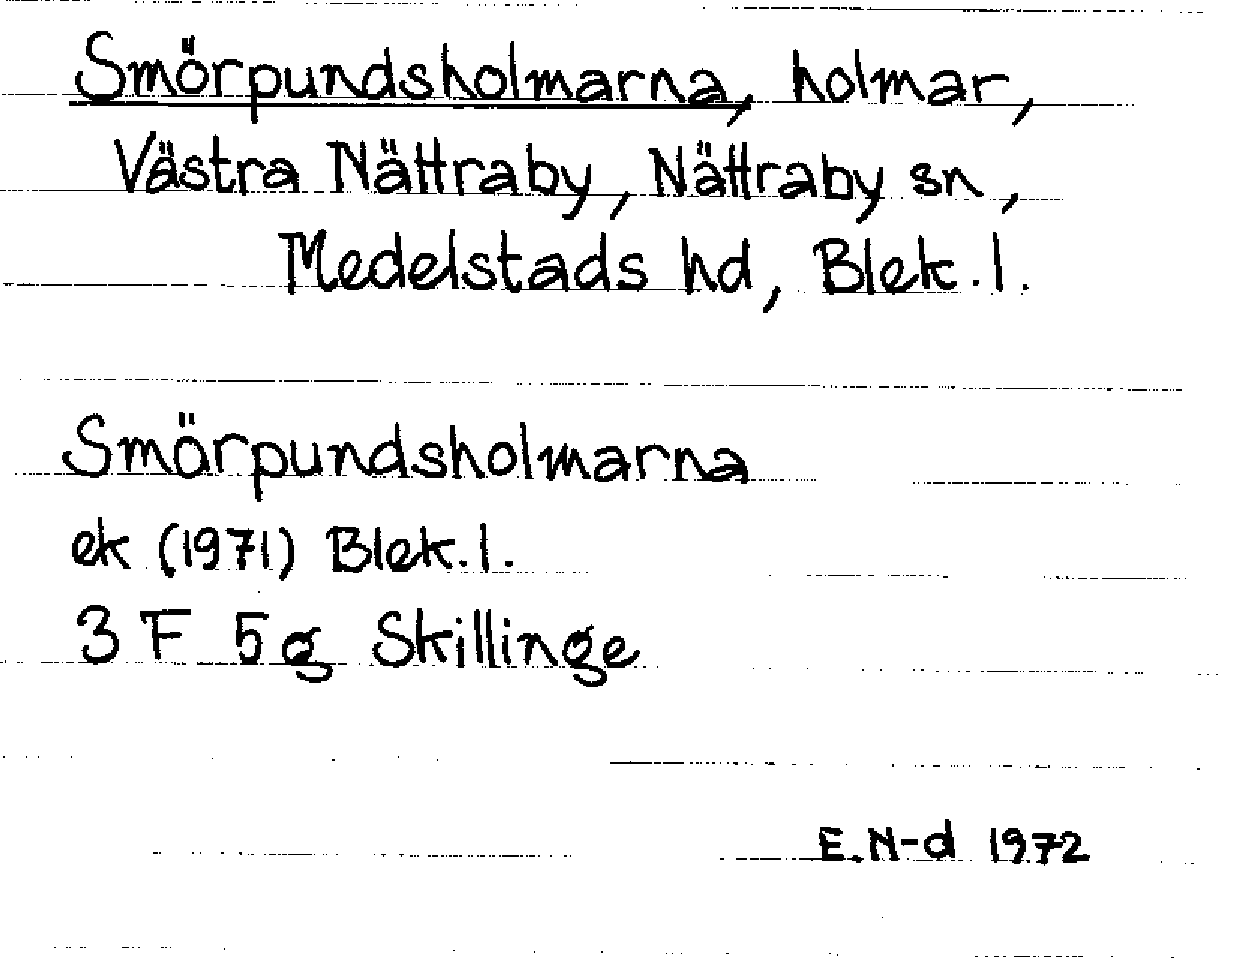 Smörpundsholmarna, holmar,
Västra Nättraby, Nättraby sn,
Medelstads hd, Blek. l.
Smörpundsholmarna
ek (1971) Blek. l.
3 F 5 g Skillinge
E. N-d 1972